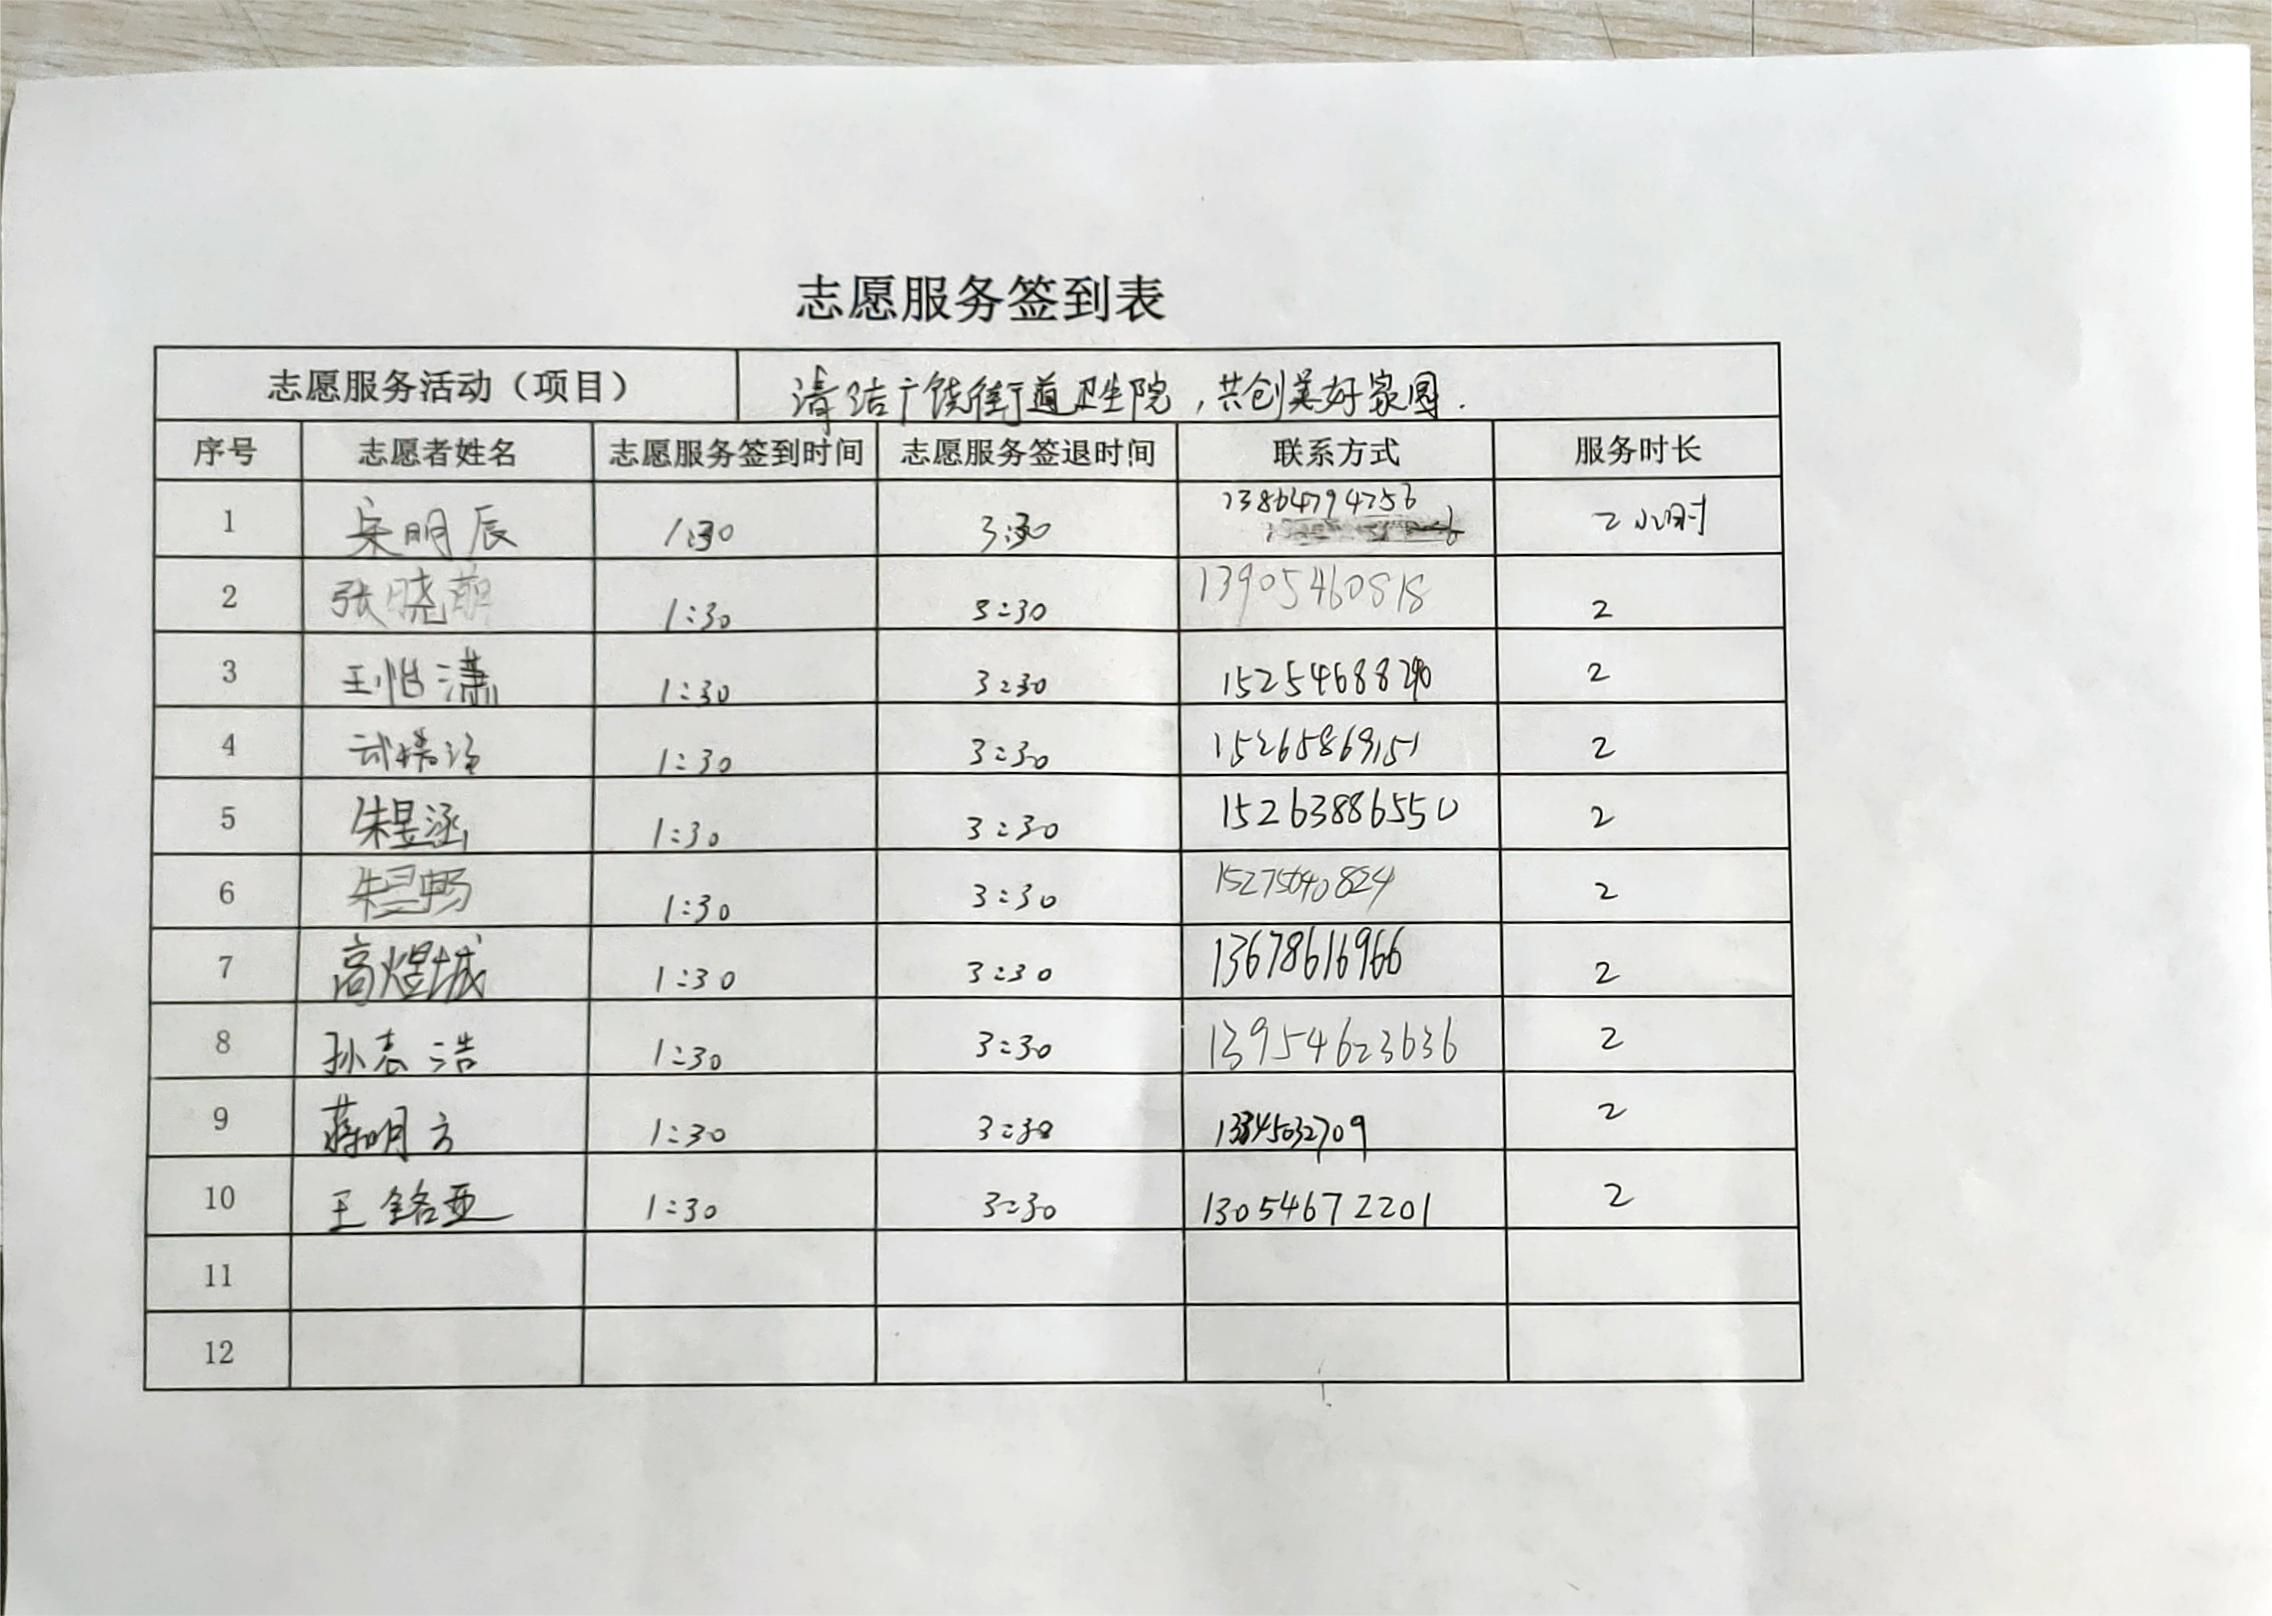 志愿服务签到表
志愿服务活动（项目） 清结广饶街道卫生院，共创美好家园.
序号 志愿者姓名 志愿服务签到时间 志愿服务签退时间 联系方式 服务时长
1 宋明辰 1:30 3:30 13864794756 2小时
2 张晓萌 1:30 3:30 13905460818 2
3 王怡潇 1:30 3:30 15254688290 2
4 1:30 3:30 15265869151 2
5 朱昱涵 1:30 3:30 15263886550 2
6 朱昱畅 1:30 3:30 15275640824 2
7 高煜城 1:30 3:30 13678616966 2
8 孙志浩 1:30 3:30 13954623636 2
9 蒋明方 1:30 3:30 13345032709 2
10 王铭亚 1:30 3:30 13054672201 2
11
12